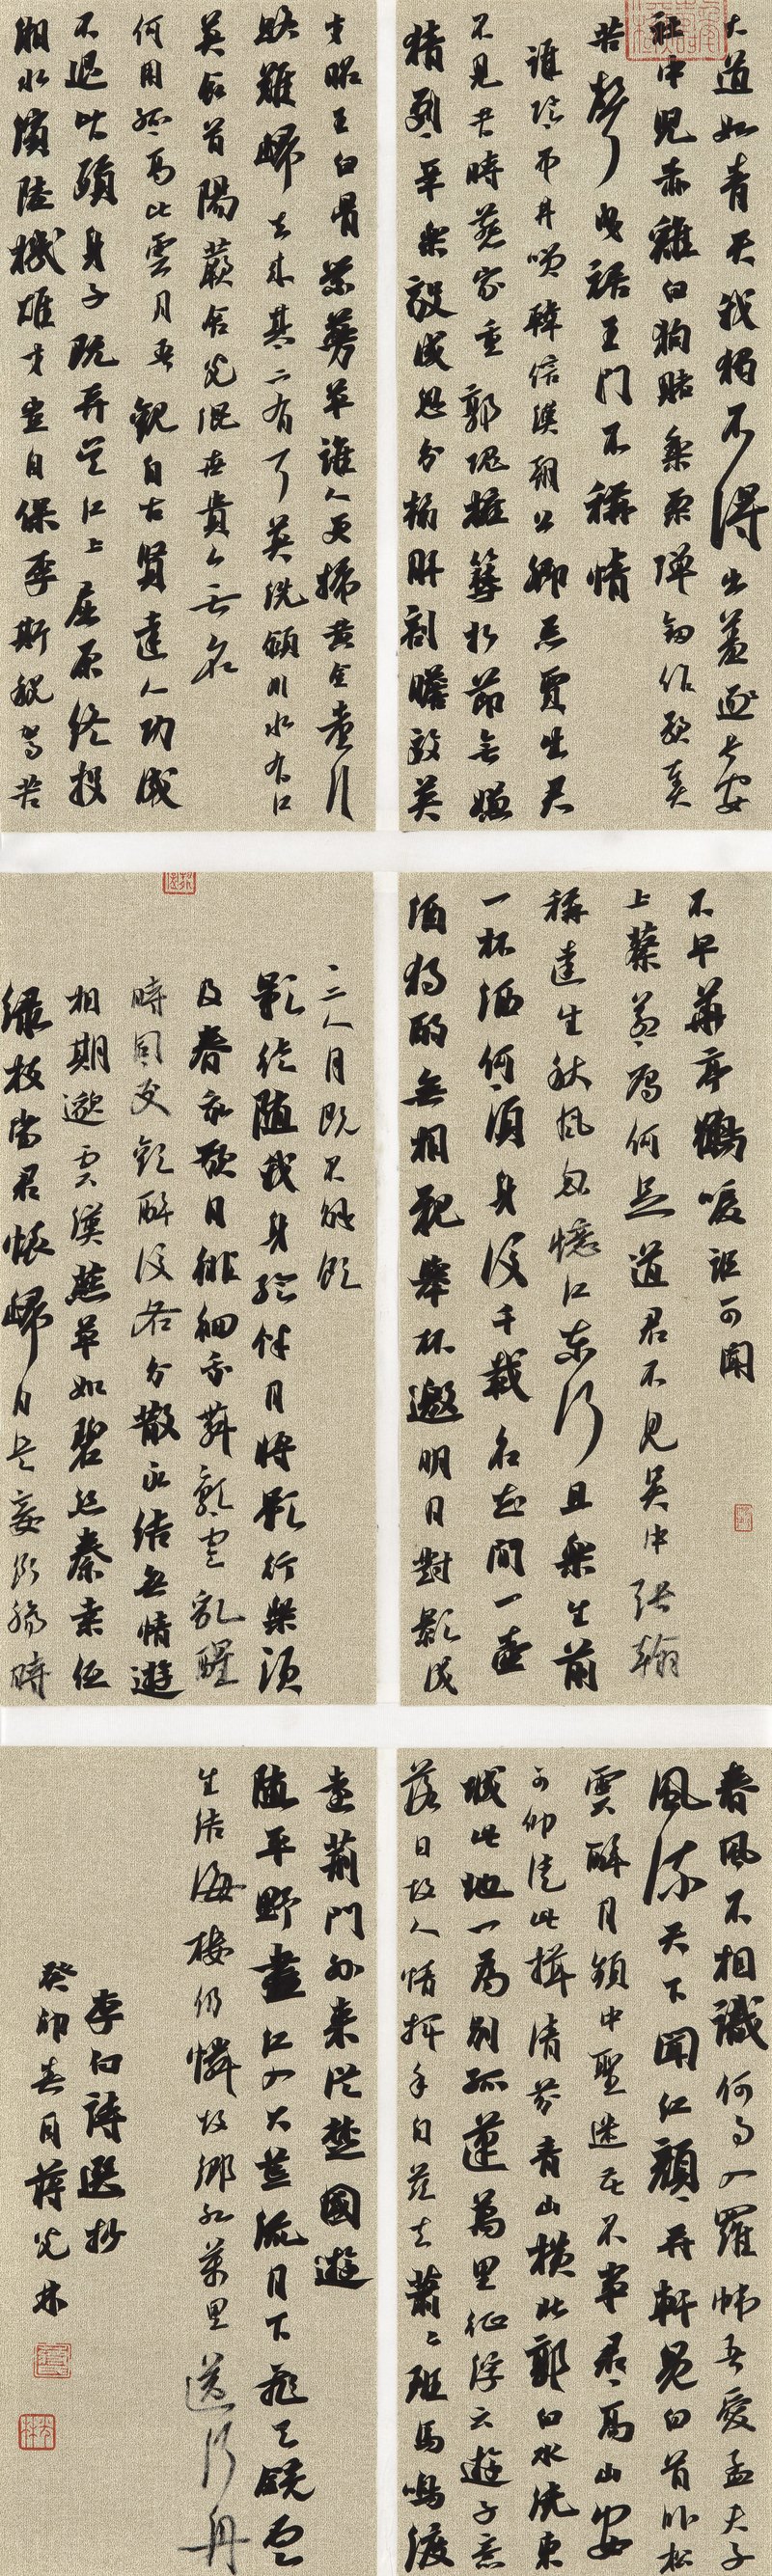 大道如青天我獨不得出羞逐長安
社中兒赤雞白狗賭梨栗彈劍作歌奏
苦聲曳裾王門不稱情
淮陰市井笑韓信漢朝公卿忌賈生君
不見昔時燕家重郭隗擁篲折節無嫌
猜劇辛樂毅感恩分輸肝剖膽效英
才昭王白骨縈蔓草誰人更掃黃金臺行
路難歸去來其二有耳莫洗潁川水有口
莫食首陽蕨含光混世貴無名
何用孤高比雲月吾觀自古賢達人功成
不退皆殞身子既弃吳江上屈原終投
湘水濱陸機雄才豈自保李斯稅駕苦
不早華亭鶴唳詎可聞
上蔡蒼鷹何足道君不見吳中張翰
稱達生秋風忽憶江東行且樂生前
一杯酒何須身後千載名花間一壺
酒獨酌無相親舉杯邀明月對影成
三人月既不解飲
影徒隨我身暫伴月將影行樂須
及春我歌月徘徊我舞影零亂醒
時同交歡醉後各分散永結無情遊
相期邈雲漢燕草如碧絲秦桑低
綠枝當君懷歸日是妾斷腸時
春風不相識何事入羅幃吾愛孟夫子
風流天下聞紅顏弃軒冕白首臥松
雲醉月頻中聖迷花不事君高山安
可仰徒此揖清芬青山橫北郭白水繞東
城此地一為別孤蓬萬里征浮云遊子意
落日故人情揮手自茲去蕭〻班馬鳴渡
遠荊門外來從楚國遊
隨平野盡江入大荒流月下飛天鏡雲
生結海樓仍憐故鄉水萬里送行舟
李白詩選抄
癸卯春月蔣光林